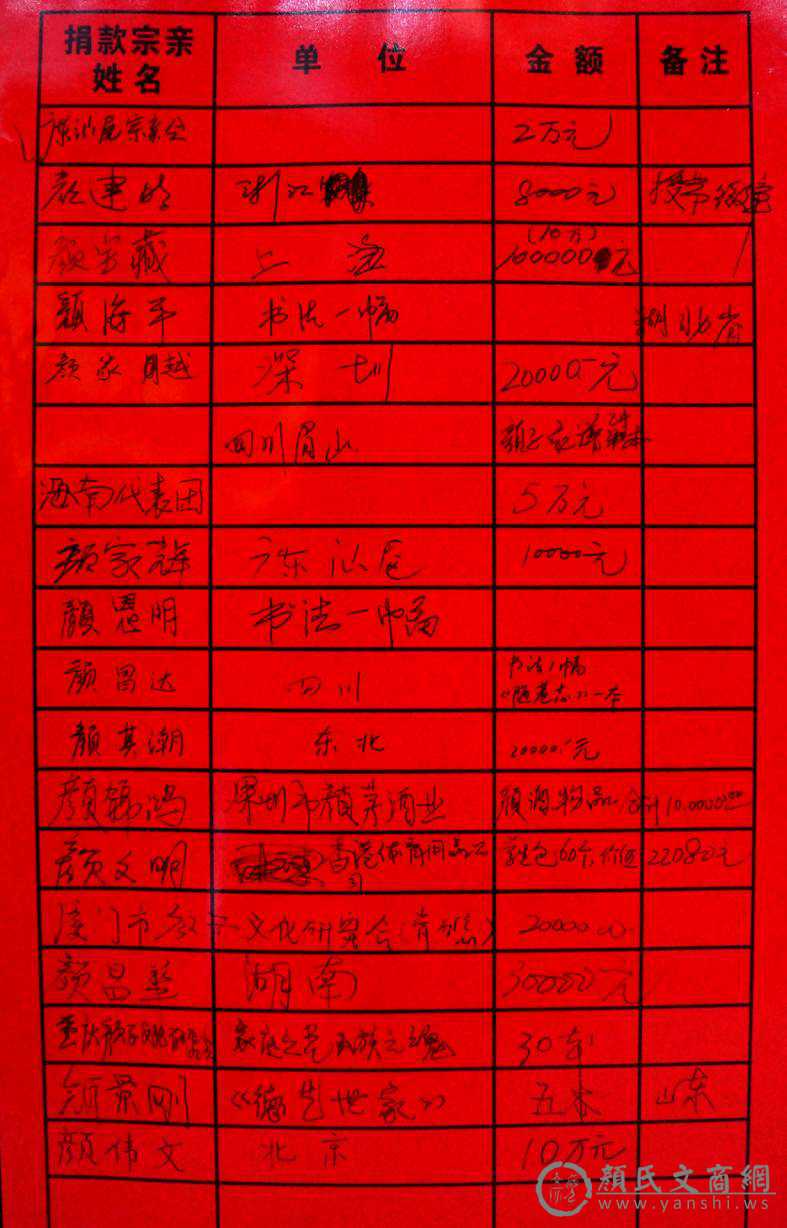 捐款宗亲姓名 单位 金额 备注
汕尾宗亲会 2万元
颜建明 浙江 8000元
颜 藏 上海 (10万) 100000元
颜海平 书法一幅 湖北省
颜家 越 深圳 20000元
四川眉山 颜子家
海南代表团 5万元
颜家 广东汕尾 10000元
颜恩明 书法一幅
颜昌达 四川 书法1幅
《陋巷志》一本
颜其潮 东北 20000元
颜锦鸿 深圳市颜 酒业 颜酒物品 合计10.0000
颜文明 香港体育用品公司 60个,价值 22080元
厦门市颜子文化研究会(青 ) 20000
颜昌 湖南 30000元
重庆颜子 家庭之 民族之魂 30本
颜景刚 《 世家》 五本 山东
颜伟文 北京 10万元
顏氏文商網
www.yanshi.ws